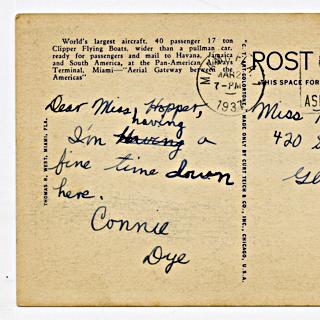 World's largest aircraft. 40 passenger 17 ton
Clipper Flying Boats, wider than a pullman car,
ready for passengers and mail to Havana, Jamaica
and South America, at the Pan-American Airways
Terminal, Miami—"Aerial Gateway between the
Americas"
Dear Miss Hopper,
having
I'm Having a
fine time down
here.
Connie
Dye
THOMAS R. WEST, MIAMI, FLA.
MAR 2
7-PM
193
"C. T. ART-COLORTONE" MADE ONLY BY CURT TEICH & CO., INC., CHICAGO, U.S.A.
POST
THIS SPACE FOR
Miss
420